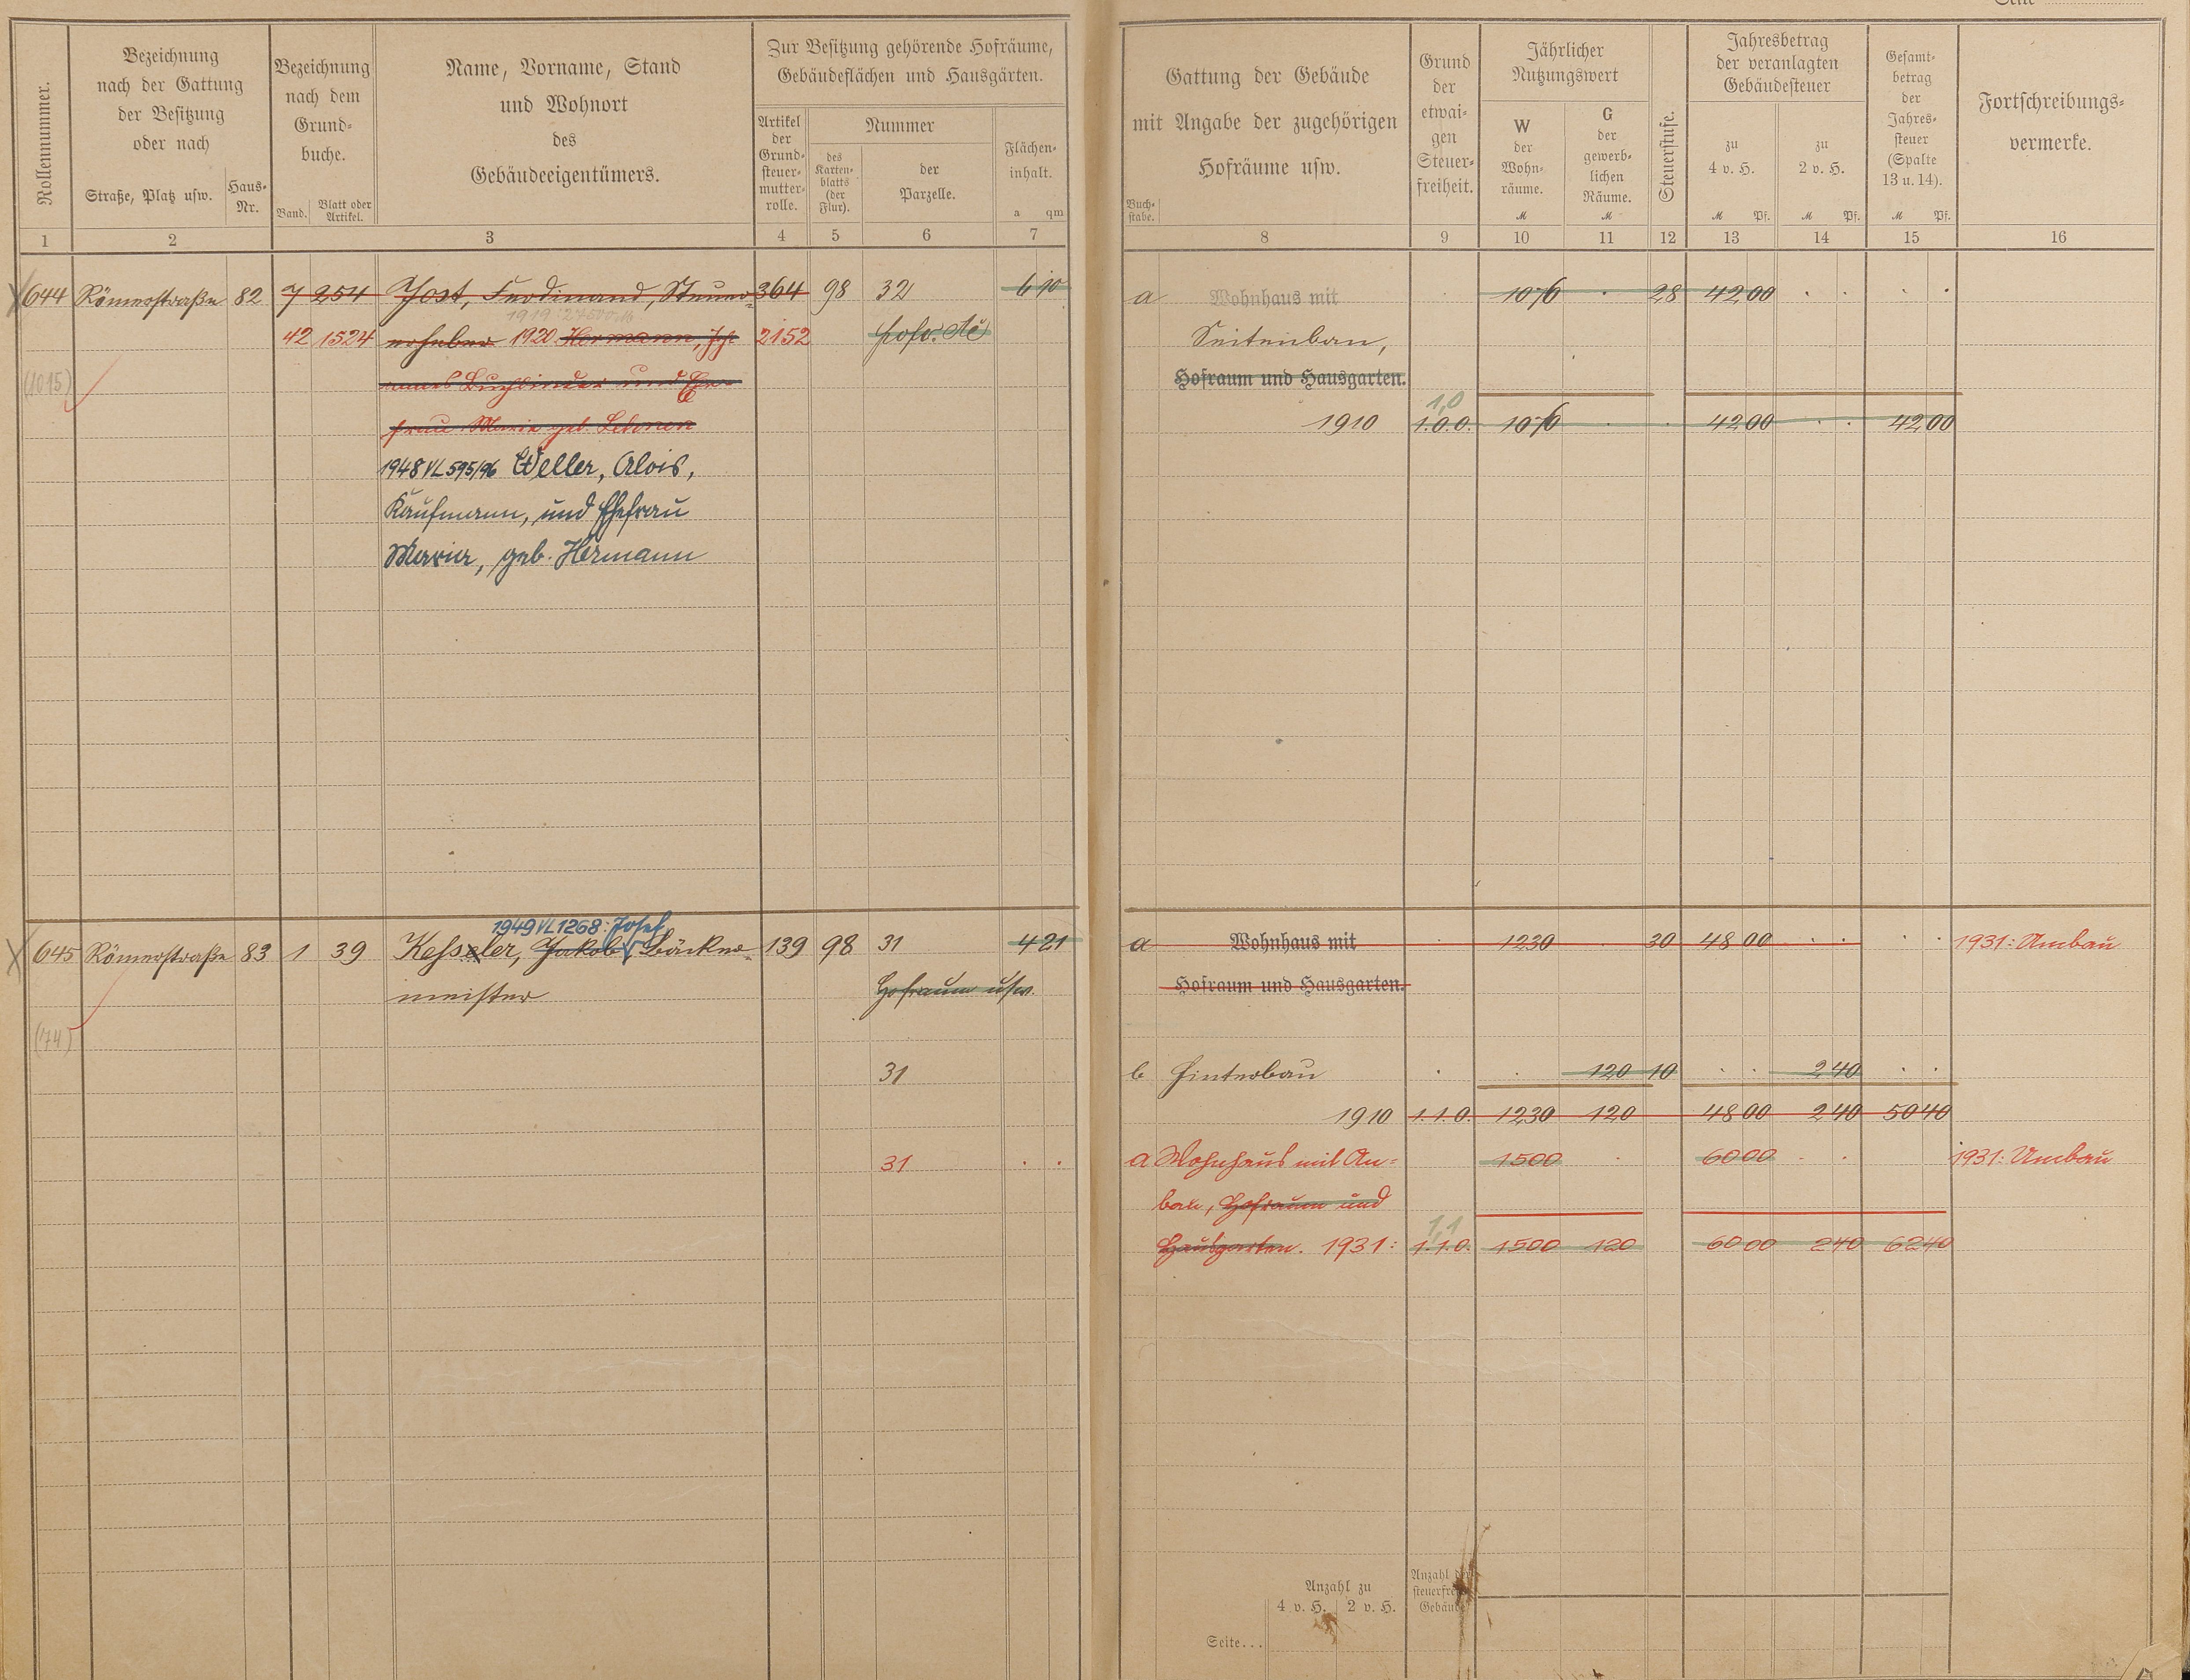 Seite
Rollennummer.
Bezeichnung
nach der Gattung
der Besitzung
oder nach
Straße, Platz usw.
Haus-
Nr.
Bezeichnung
nach dem
Grund-
buche.
Band.
Blatt oder
Artikel.
Name, Vorname, Stand
und Wohnort
des
Gebäudeeigentümers.
Zur Besitzung gehörende Hofräume,
Gebäudeflächen und Hausgärten.
Artikel
der
Grund-
steuer-
mutter-
rolle.
Nummer
des
Karten-
blatts
(der
Flur).
der
Parzelle.
Flächen-
inhalt.
a qm
1 2 3 4 5 6 7
Gattung der Gebäude
mit Angabe der zugehörigen
Hofräume usw.
Buch-
stabe.
Grund
der
etwai-
gen
Steuer-
freiheit.
Jährlicher
Nutzungswert
W
der
Wohn-
räume.
M
G
der
gewerb-
lichen
Räume.
M
Steuerstufe.
Jahresbetrag
der veranlagten
Gebäudesteuer
zu
4 v. H.
M Pf.
zu
2 v. H.
M Pf.
Gesamt-
betrag
der
Jahres-
steuer
(Spalte
13 u. 14).
M Pf.
Fortschreibungs-
vermerke.
8 9 10 11 12 13 14 15 16
644 Römerstraße 82 7 254 Jost, Ferdinand, Steuer- 364 98 32 6 90
a Wohnhaus mit 1076 . 28 42 00 . . . .
42 1524 erheber 1920 Hermann, Joh 2152
Seitenbau,
(1015) annes Buchbinder und Ehe-
Hofraum und Hausgarten.
frau Maria geb.
1,0
1910 1.0.0. 1076 . . 42 00 . . 42 00
1948 VL 595/96 Weller, Alois,
Kaufmann, und Ehefrau
Maria, geb. Hermann
1949 VL 1268: Josef
645 Römerstraße 83 1 39 Kessler, Jakob, Bäcker- 139 98 31 4 21
a Wohnhaus mit . 1230 . 30 48 00 . . . . 1931: Umbau
meister Hofraum usw.
Hofraum und Hausgarten.
(74)
31
b Hinterbau . . 120 10 . . 2 40 . .
1910 1.1.0. 1230 120 48 00 2 40 50 40
31 . .
a Wohnhaus mit An- 1500 . 60 00 . . 1931: Umbau
bau, Hofraum und
1,1
Hausgarten. 1931: 1.1.0. 1500 120 60 00 2 40 62 40
Anzahl zu
4 v. H. 2 v. H.
Anzahl der
steuerfreien
Gebäude
Seite...